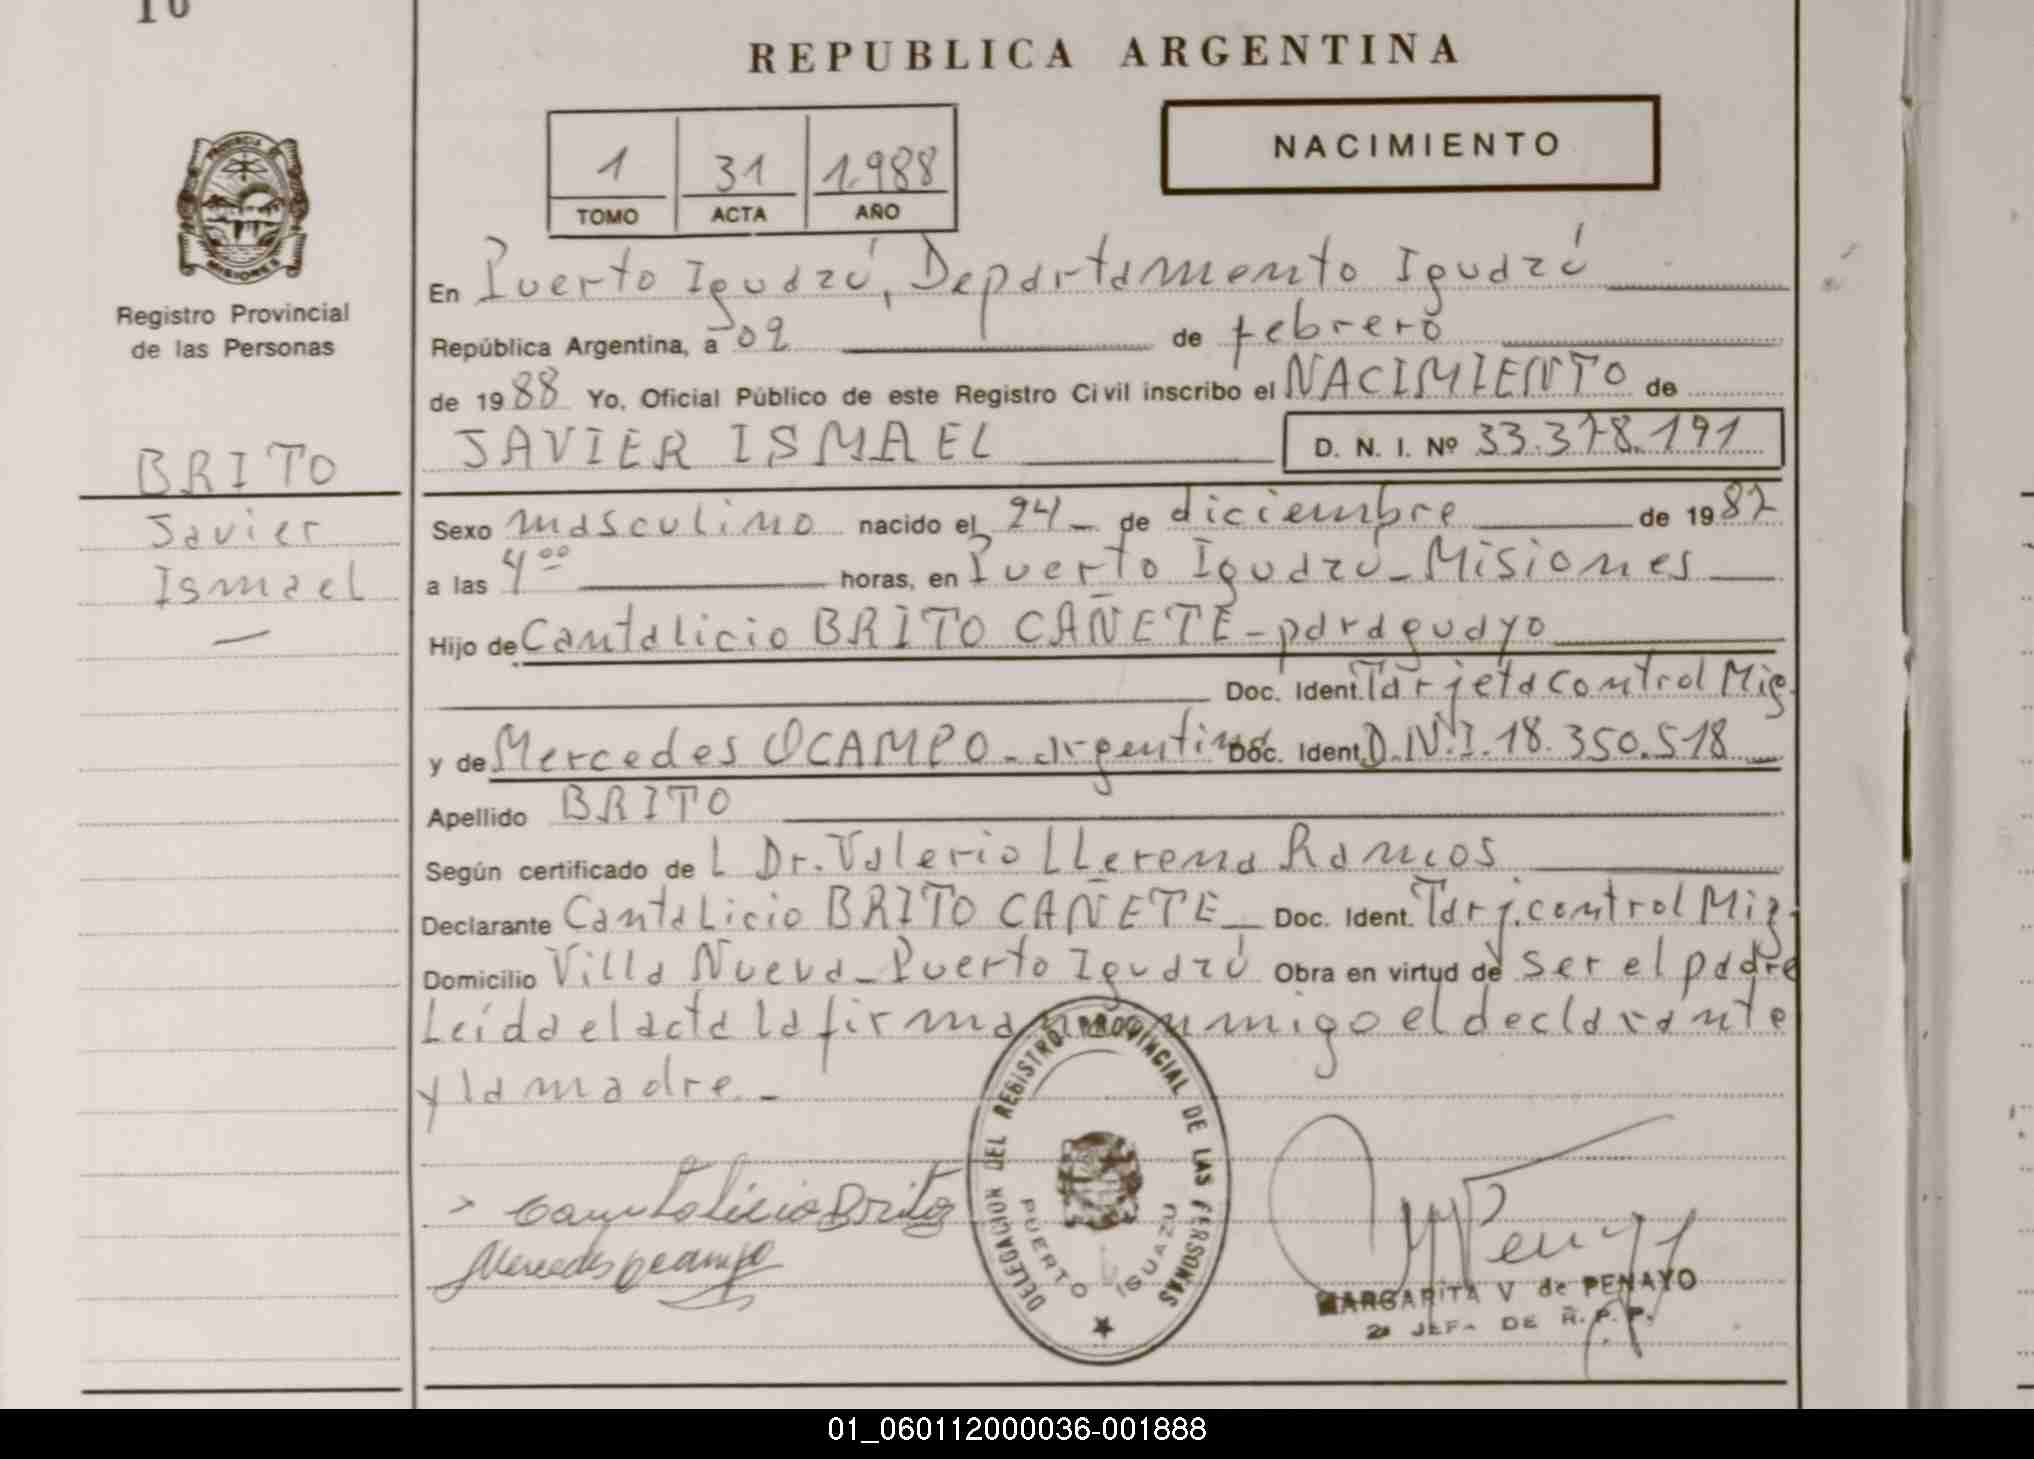 10
REPUBLICA ARGENTINA
NACIMIENTO
1 31 1.988
TOMO ACTA AÑO
PROVINCIA DE
MISIONES
Registro Provincial
de las Personas
BRITO
Javier
Ismael
—
En Puerto Iguazú, Departamento Iguazú
República Argentina, a 02 de febrero
de 1988 Yo, Oficial Público de este Registro Civil inscribo el NACIMIENTO de
JAVIER ISMAEL D. N. I. Nº 33.378.191
Sexo masculino nacido el 24 de diciembre de 1987
a las 4 00 horas, en Puerto Iguazú - Misiones
Hijo de Cantalicio BRITO CAÑETE - paraguayo
Doc. Ident. Tarjeta Control Mig.
y de Mercedes OCAMPO - argentina Doc. Ident. D.N.I. 18.350.518
Apellido BRITO
Según certificado de L Dr. Valerio LLerena Ramos
Declarante Cantalicio BRITO CAÑETE Doc. Ident. Tarj. control Mig.
Domicilio Villa Nueva - Puerto Iguazú Obra en virtud de ser el padre
Leída el acta la firman conmigo el declarante
y la madre. -
Cantalicio Brito
Mercedes Ocampo
DELEGACION DEL REGISTRO PROVINCIAL DE LAS PERSONAS
PUERTO IGUAZU
MARGARITA V de PENAYO
2a JEFA DE R. P. P.
01_060112000036-001888